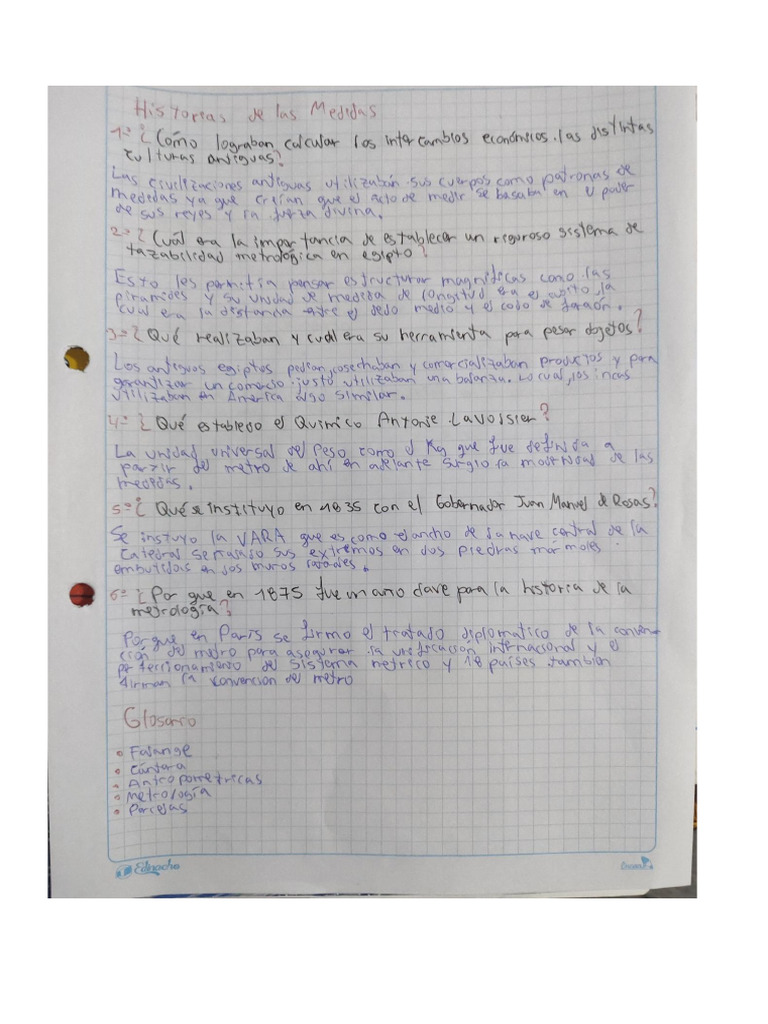 Historias de las Medidas
1-¿Cómo lograban calcular los intercambios económicos las distintas
culturas antiguas?
Las civilizaciones antiguas utilizaban sus cuerpos como patronas de
medidas ya que creían que el acto de medir se basaba en el poder
de sus reyes y la fuerza divina.
2-¿Cuál era la importancia de establecer un riguroso sistema de
tazabilidad metrológica en egipto?
Esto les permitia pensar estructurar magnificas como las
piramides y su unidad de medida de longitud era el cubito, la
cual era la distancia entre el dedo medio y el codo de faraón.
3-¿Qué realizaban y cuál era su herramienta para pesar objetos?
Los antiguos egiptos pedian, cosechaban y comercializaban productos y para
garantizar un comercio justo utilizaban una balanza. Lo cual, los incas
utilizaban en America algo similar.
4-¿Qué establedo el Químico Antonie Lavoisier?
La unidad universal del Peso como el Kg que fue definida a
partir del metro de ahí en adelante surgio la modernidad de las
medidas.
5-¿Qué se instituyo en 1835 con el Gobernador Juan Manuel de Rosas?
Se instuyo la VARA que es como el ancho de la nave central de la
Catedral se sus extremos en dos piedras marmoles
embutidas en los muros
6-¿Por que en 1875 fue un año clave para la historia de la
metrología?
Porque en París se firmo el tratado diplomatico de la conven-
ción del metro para asegurar la unificación internacional y el
perfeccionamiento del sistema metrico y 18 países tambien
firman la Konvencion del metro
Glosario
• Falange
• Cántara
• Antropometricas
• Metrología
• Parcelas
Edunocha